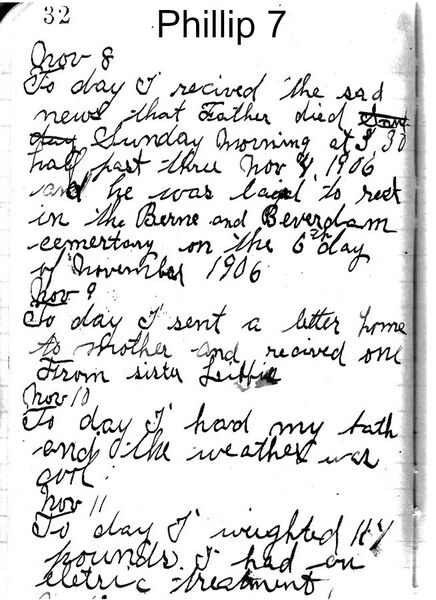 32
Phillip 7
Nov 8
To day I recived the sad
news that Father died
Sunday Morning at 3,30
half past three Nov 4, 1906
and he was laid to rest
in the Berne and Beverdam
cemertary on the 6th day
of November 1906
Nov 9
To day I sent a letter home
to mother and recived one
From sister
Nov 10
To day I had my bath
and the weather was
cool.
Nov 11
To day I weighted
pounds. I had an
eletric treatment,